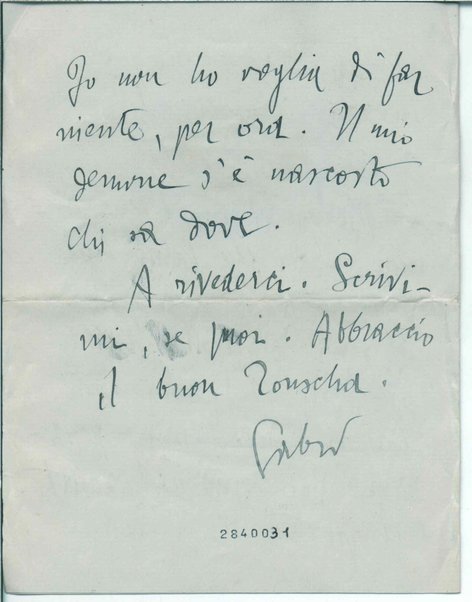 Io non ho voglia di far
niente, per ora. Il mio
demone s'è nascosto
chi sa dove.
A rivederci. Scrivi-
mi, se puoi. Abbraccio
il buon
2840031